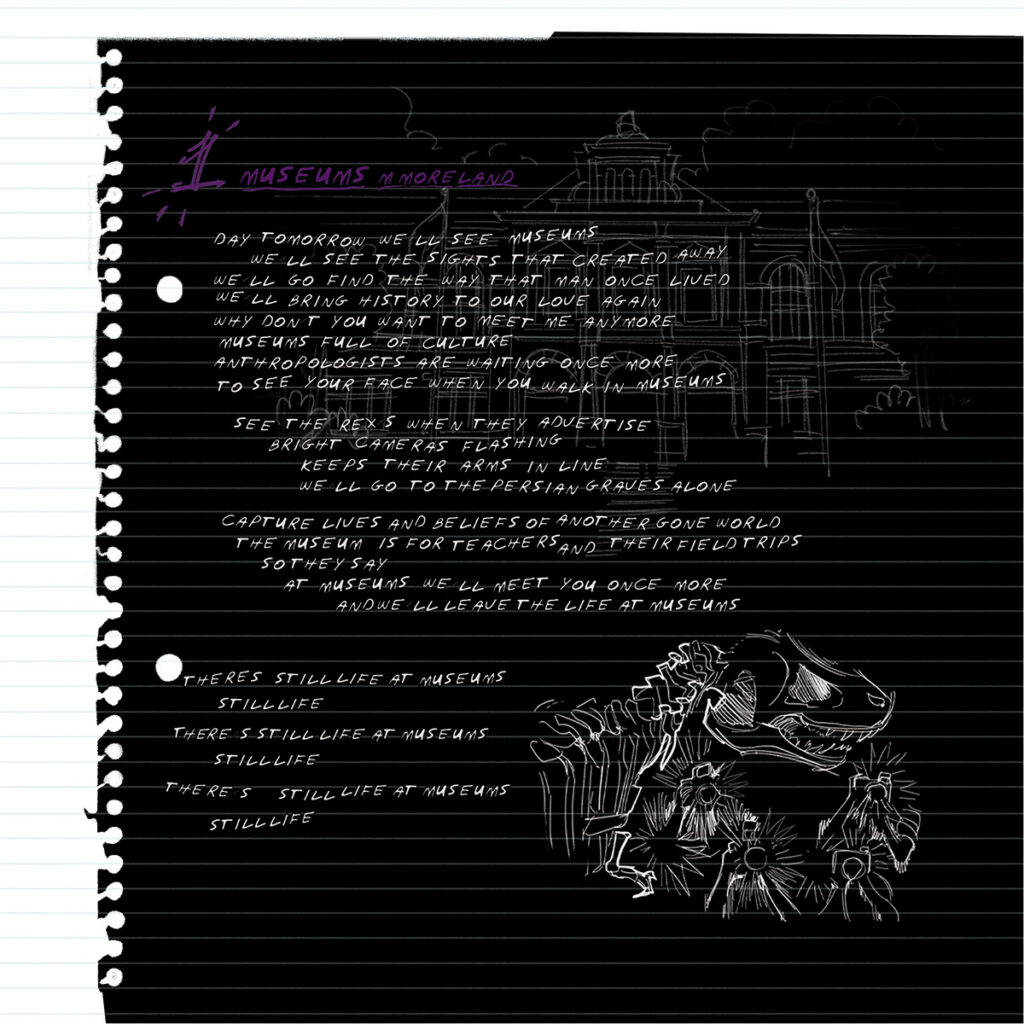 1 MUSEUMS M MORELAND
DAY TOMORROW WE'LL SEE MUSEUMS
WE'LL SEE THE SIGHTS THAT CREATED AWAY
WE'LL GO FIND THE WAY THAT MAN ONCE LIVED
WE'LL BRING HISTORY TO OUR LOVE AGAIN
WHY DON'T YOU WANT TO MEET ME ANYMORE
MUSEUMS FULL OF CULTURE
ANTHROPOLOGISTS ARE WAITING ONCE MORE
TO SEE YOUR FACE WHEN YOU WALK IN MUSEUMS
SEE THE REX'S WHEN THEY ADVERTISE
BRIGHT CAMERAS FLASHING
KEEPS THEIR ARMS IN LINE
WE'LL GO TO THE PERSIAN GRAVES ALONE
CAPTURE LIVES AND BELIEFS OF ANOTHER GONE WORLD
THE MUSEUM IS FOR TEACHERS AND THEIR FIELD TRIPS
SO THEY SAY
AT MUSEUMS WE'LL MEET YOU ONCE MORE
AND WE'LL LEAVE THE LIFE AT MUSEUMS
THERE'S STILL LIFE AT MUSEUMS
STILL LIFE
THERE'S STILL LIFE AT MUSEUMS
STILL LIFE
THERE'S STILL LIFE AT MUSEUMS
STILL LIFE